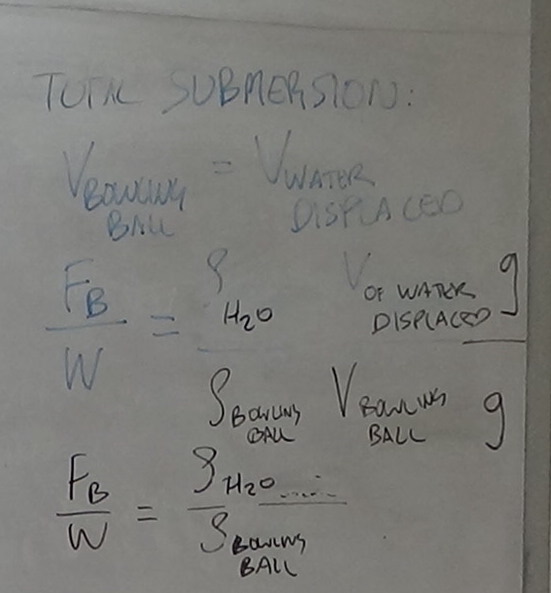 TOTAL SUBMERSION:
V BOWLING BALL = V WATER DISPLACED
F_B / W = ρ H₂O V OF WATER DISPLACED g / ρ BOWLING BALL V BOWLING BALL g
F_B / W = ρ H₂O / ρ BOWLING BALL